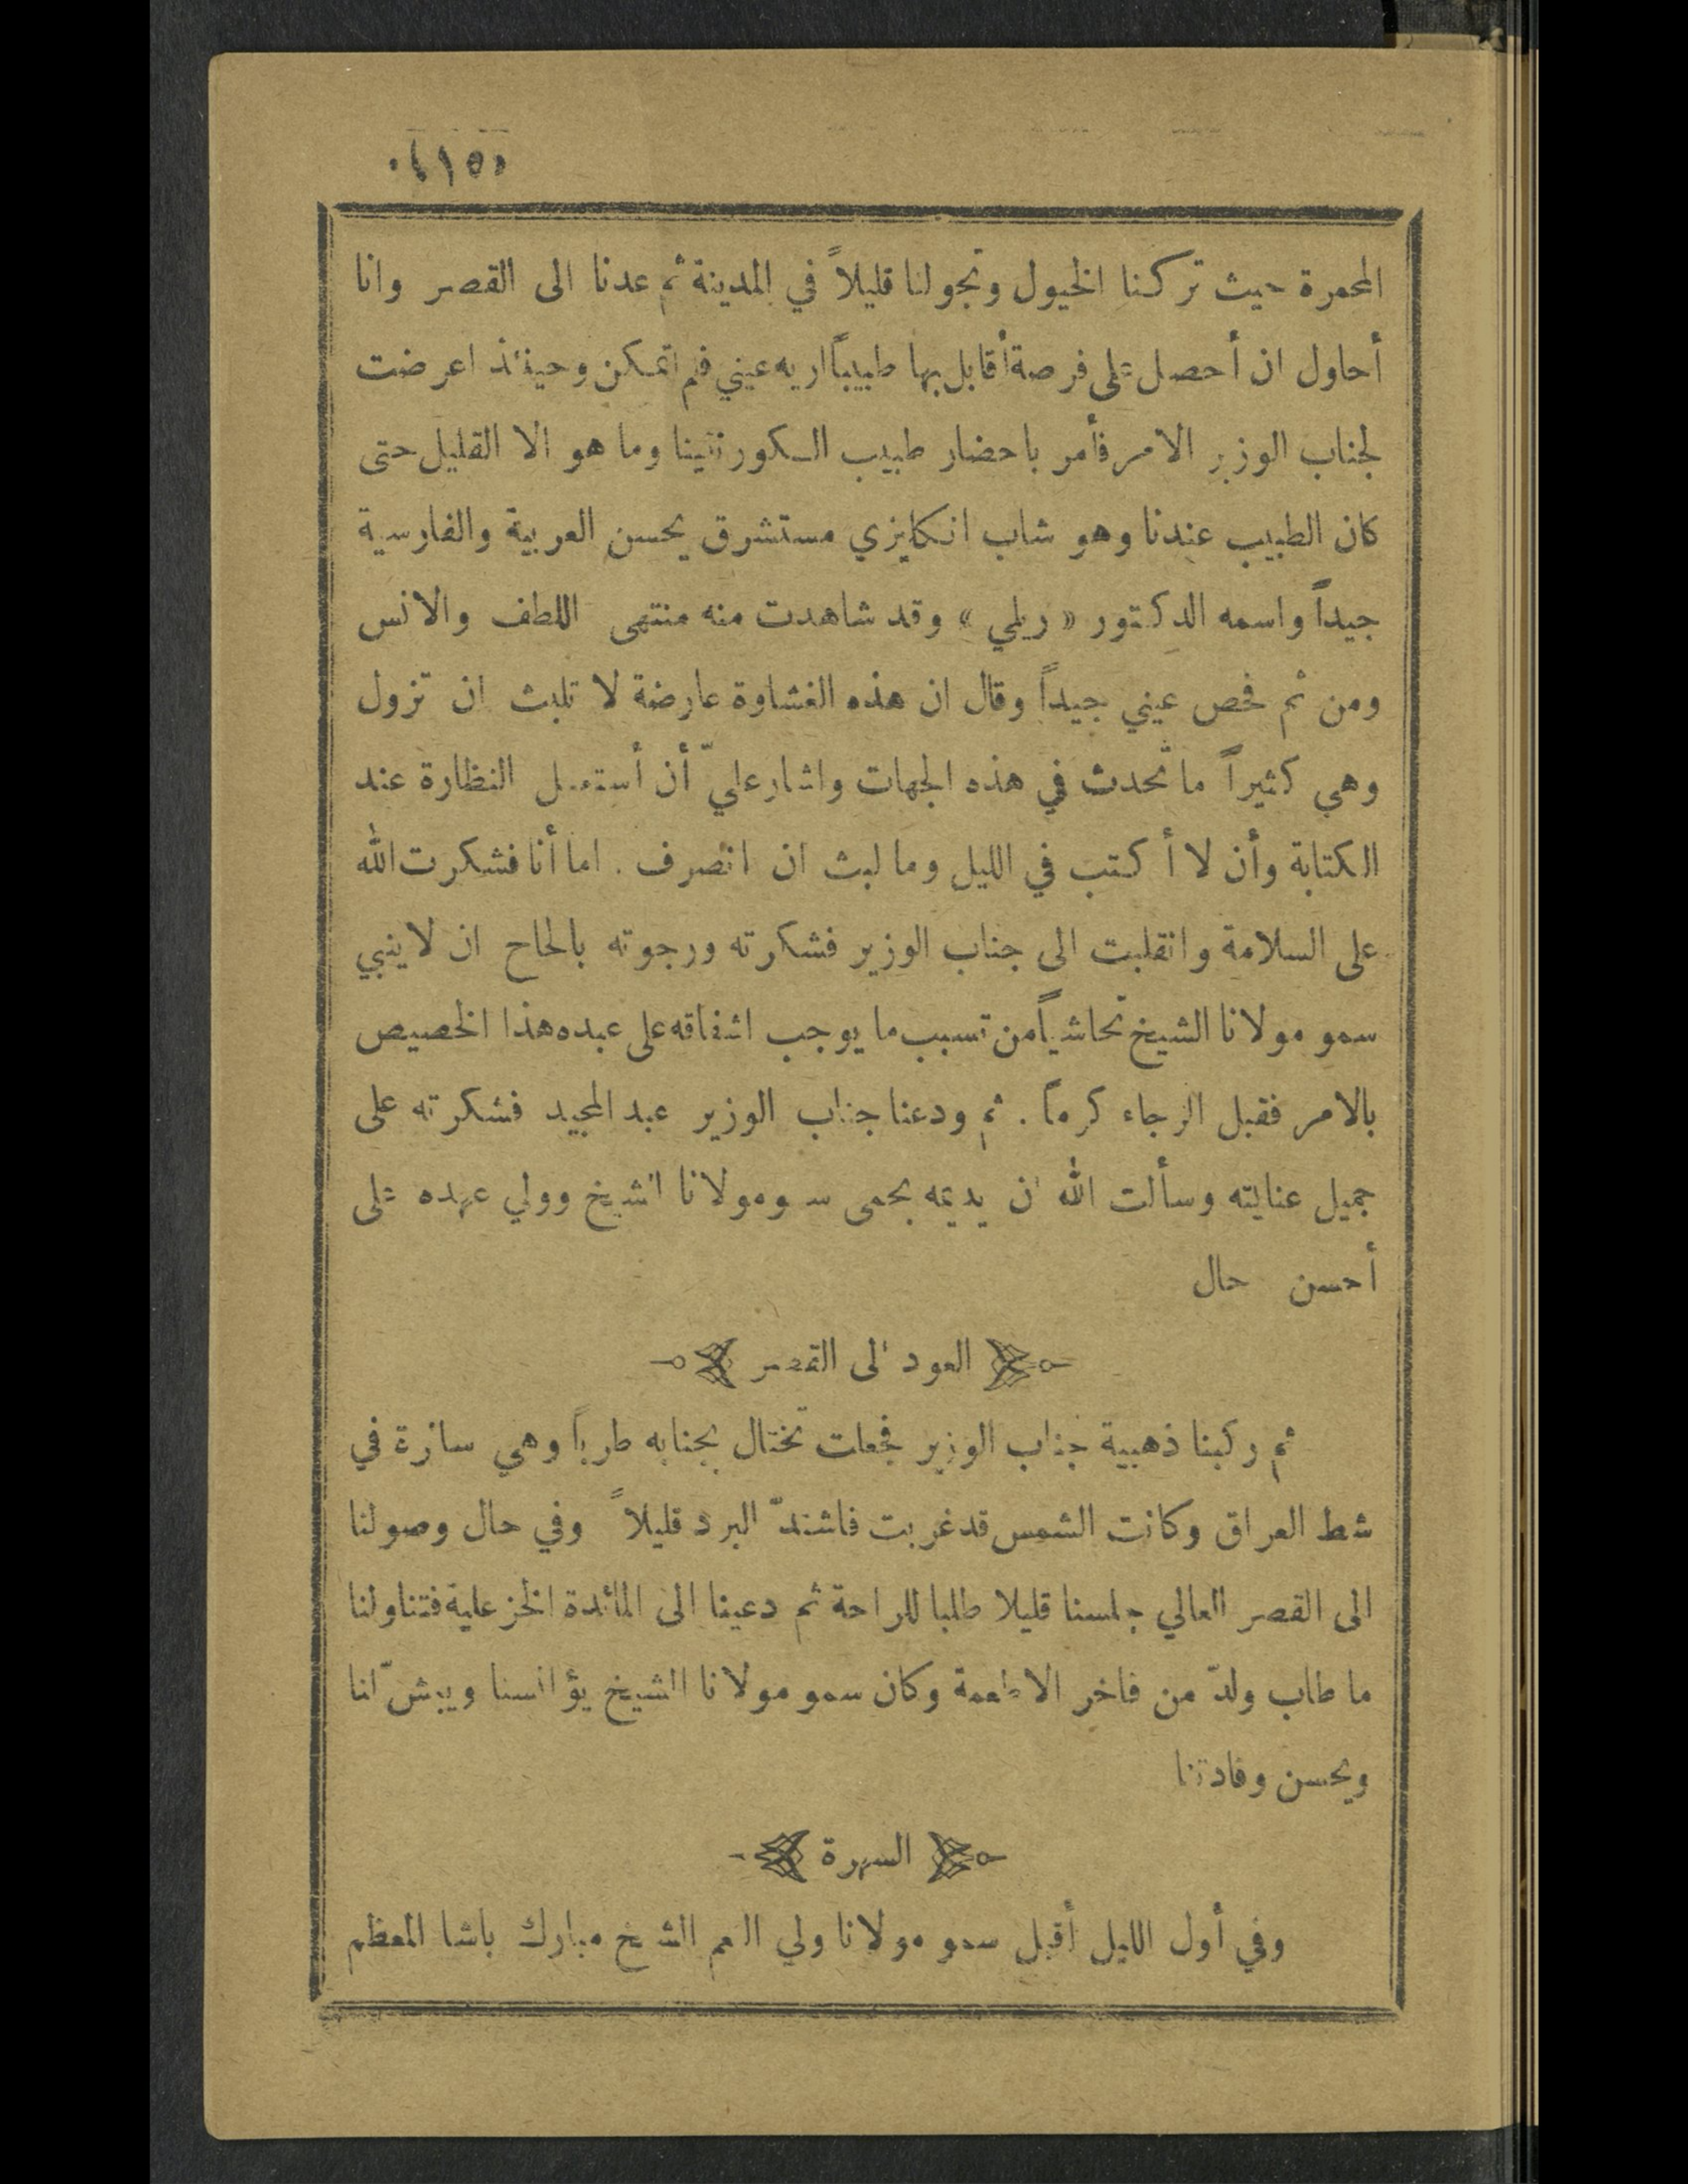 ﴿٤١٥﴾
المحمرة حيث تركنا الخيول وتجولنا قليلاً في المدينة ثم عدنا الى القصر وانا
أحاول ان أحصل على فرصة أقابل بها طبيباً اريه عيني فلم اتمكن وحينئذ اعرضت
لجناب الوزير الامر فأمر باحضار طبيب الكورنتينا وما هو الا القليل حتى
كان الطبيب عندنا وهو شاب انكليزي مستشرق يحسن العربية والفارسية
جيداً واسمه الدكتور « ريلي » وقد شاهدت منه منتهى اللطف والانس
ومن ثم فحص عيني جيداً وقال ان هذه الغشاوة عارضة لا تلبث ان تزول
وهي كثيراً ما تحدث في هذه الجهات واشار عليّ أن أستعمل النظارة عند
الكتابة وأن لا أكتب في الليل وما لبث ان انصرف . اما أنا فشكرت الله
على السلامة وانقلبت الى جناب الوزير فشكرته ورجوته بالحاح ان لا ينبي
سمو مولانا الشيخ تحاشياً من تسبب ما يوجب اشفاقه على عبده هذا الخصيص
بالامر فقبل الرجاء كرماً . ثم ودعنا جناب الوزير عبد المجيد فشكرته على
جميل عنايته وسألت الله ان يديمه بحمى سمو مولانا الشيخ وولي عهده على
أحسن حال
العود الى القصر
ثم ركبنا ذهبية جناب الوزير فجعلت تختال بجنابه طرباً وهي سائرة في
شط العراق وكانت الشمس قد غربت فاشتدّ البرد قليلاً وفي حال وصولنا
الى القصر العالي جلسنا قليلا طلبا للراحة ثم دعينا الى المائدة الخزعلية فتناولنا
ما طاب ولذّ من فاخر الاطعمة وكان سمو مولانا الشيخ يؤانسنا ويبشّ لنا
ويحسن وفادتنا
السهرة
وفي أول الليل أقبل سمو مولانا ولي النعم الشيخ مبارك باشا المعظم